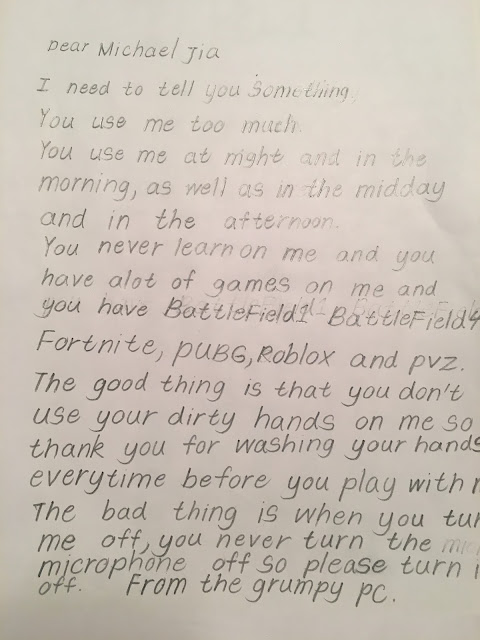 Dear Michael Jia
I need to tell you something.
You use me too much.
You use me at night and in the
morning, as well as in the midday
and in the afternoon.
You never learn on me and you
have alot of games on me and
you have BattleField1 BattleField4
Fortnite, PUBG, Roblox and pvz.
The good thing is that you don't
use your dirty hands on me so
thank you for washing your hands
everytime before you play with
The bad thing is when you
me off, you never turn the
microphone off so please turn
off. From the grumpy pc.